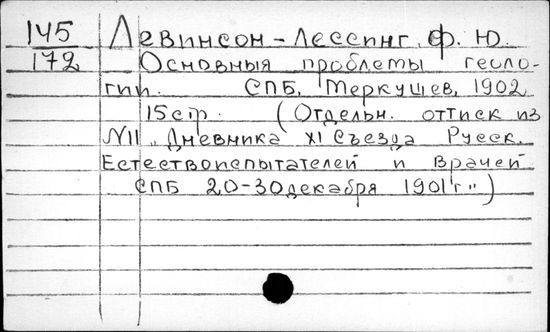 145 Левинсон-Лессинг, Ф. Ю.
172 Основныя проблемы геоло-
гии. СПБ, Меркушев, 1902
15 стр. (Отдельн. оттиск из
N11 „Дневника XI Съезда Русск.
Естествоиспытателей и Врачей
СПБ 20-30 декабря 1901 г.")